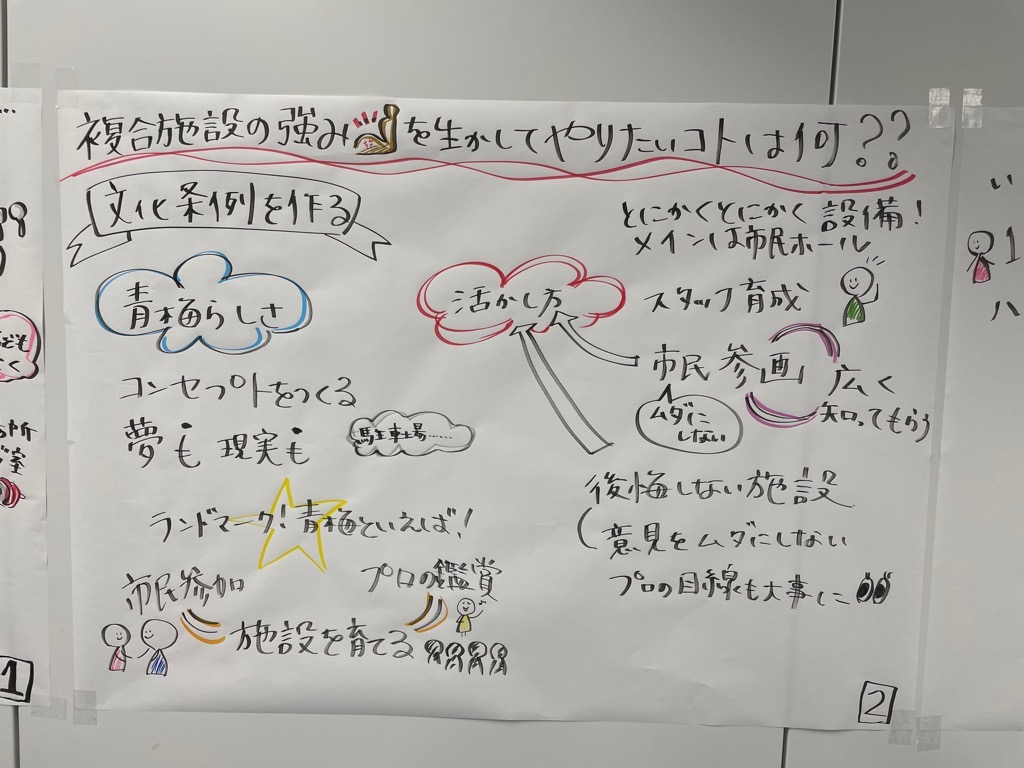 複合施設の強みを生かしてやりたいコトは何??
文化条例を作る
青梅らしさ
コンセプトをつくる
夢も 現実も
駐車場……
ランドマーク!青梅といえば!
市民参加
プロの鑑賞
施設を育てる
活かし方
とにかくとにかく 設備!
メインは市民ホール
スタッフ育成
市民参画
広く
知ってもらう
ムダに
しない
後悔しない施設
(意見をムダにしない
プロの目線も大事に
2
1
い
1
ハ